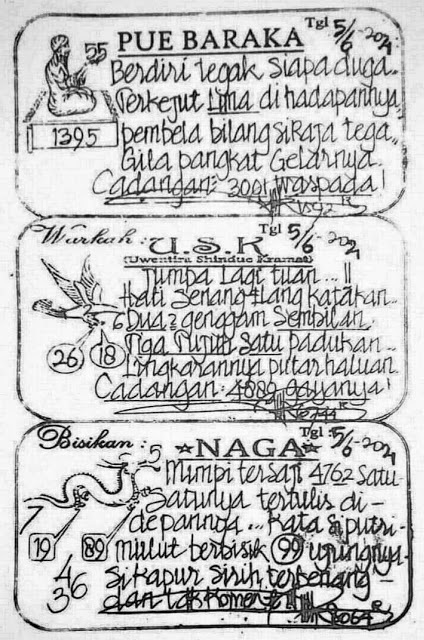 Tgl 5/6-2021
PUE BARAKA
55
Berdiri tegak siapa duga..
Terkejut Lima di hadapannya
1395
pembela bilang siRaja tega..
Gila pangkat Gelarnya.
Cadangan: 3001 waspada!
Tgl 5/6-2021
Warkah:
U.S.K
(Uwentira Shindue Kramat)
Jumpa lagi tuan...!!
Hati Senang 4lang katakan..
6 Dua 2 genggam Sembilan.
26 18
Tiga Tujuh Satu padukan..
Lingkarannya putar haluan.
Cadangan: 4889 gayanya!
Tgl: 5/6-2021
Bisikan:
NAGA
5
Mimpi tersaji 4762 satu-
Satunya tertulis di-
depannya... Kata si putri-
7
19 89
mulut berbisik 99 ujungnya.
46
36
Si kapur Sirih terbenang
dan tak Komentar!!!